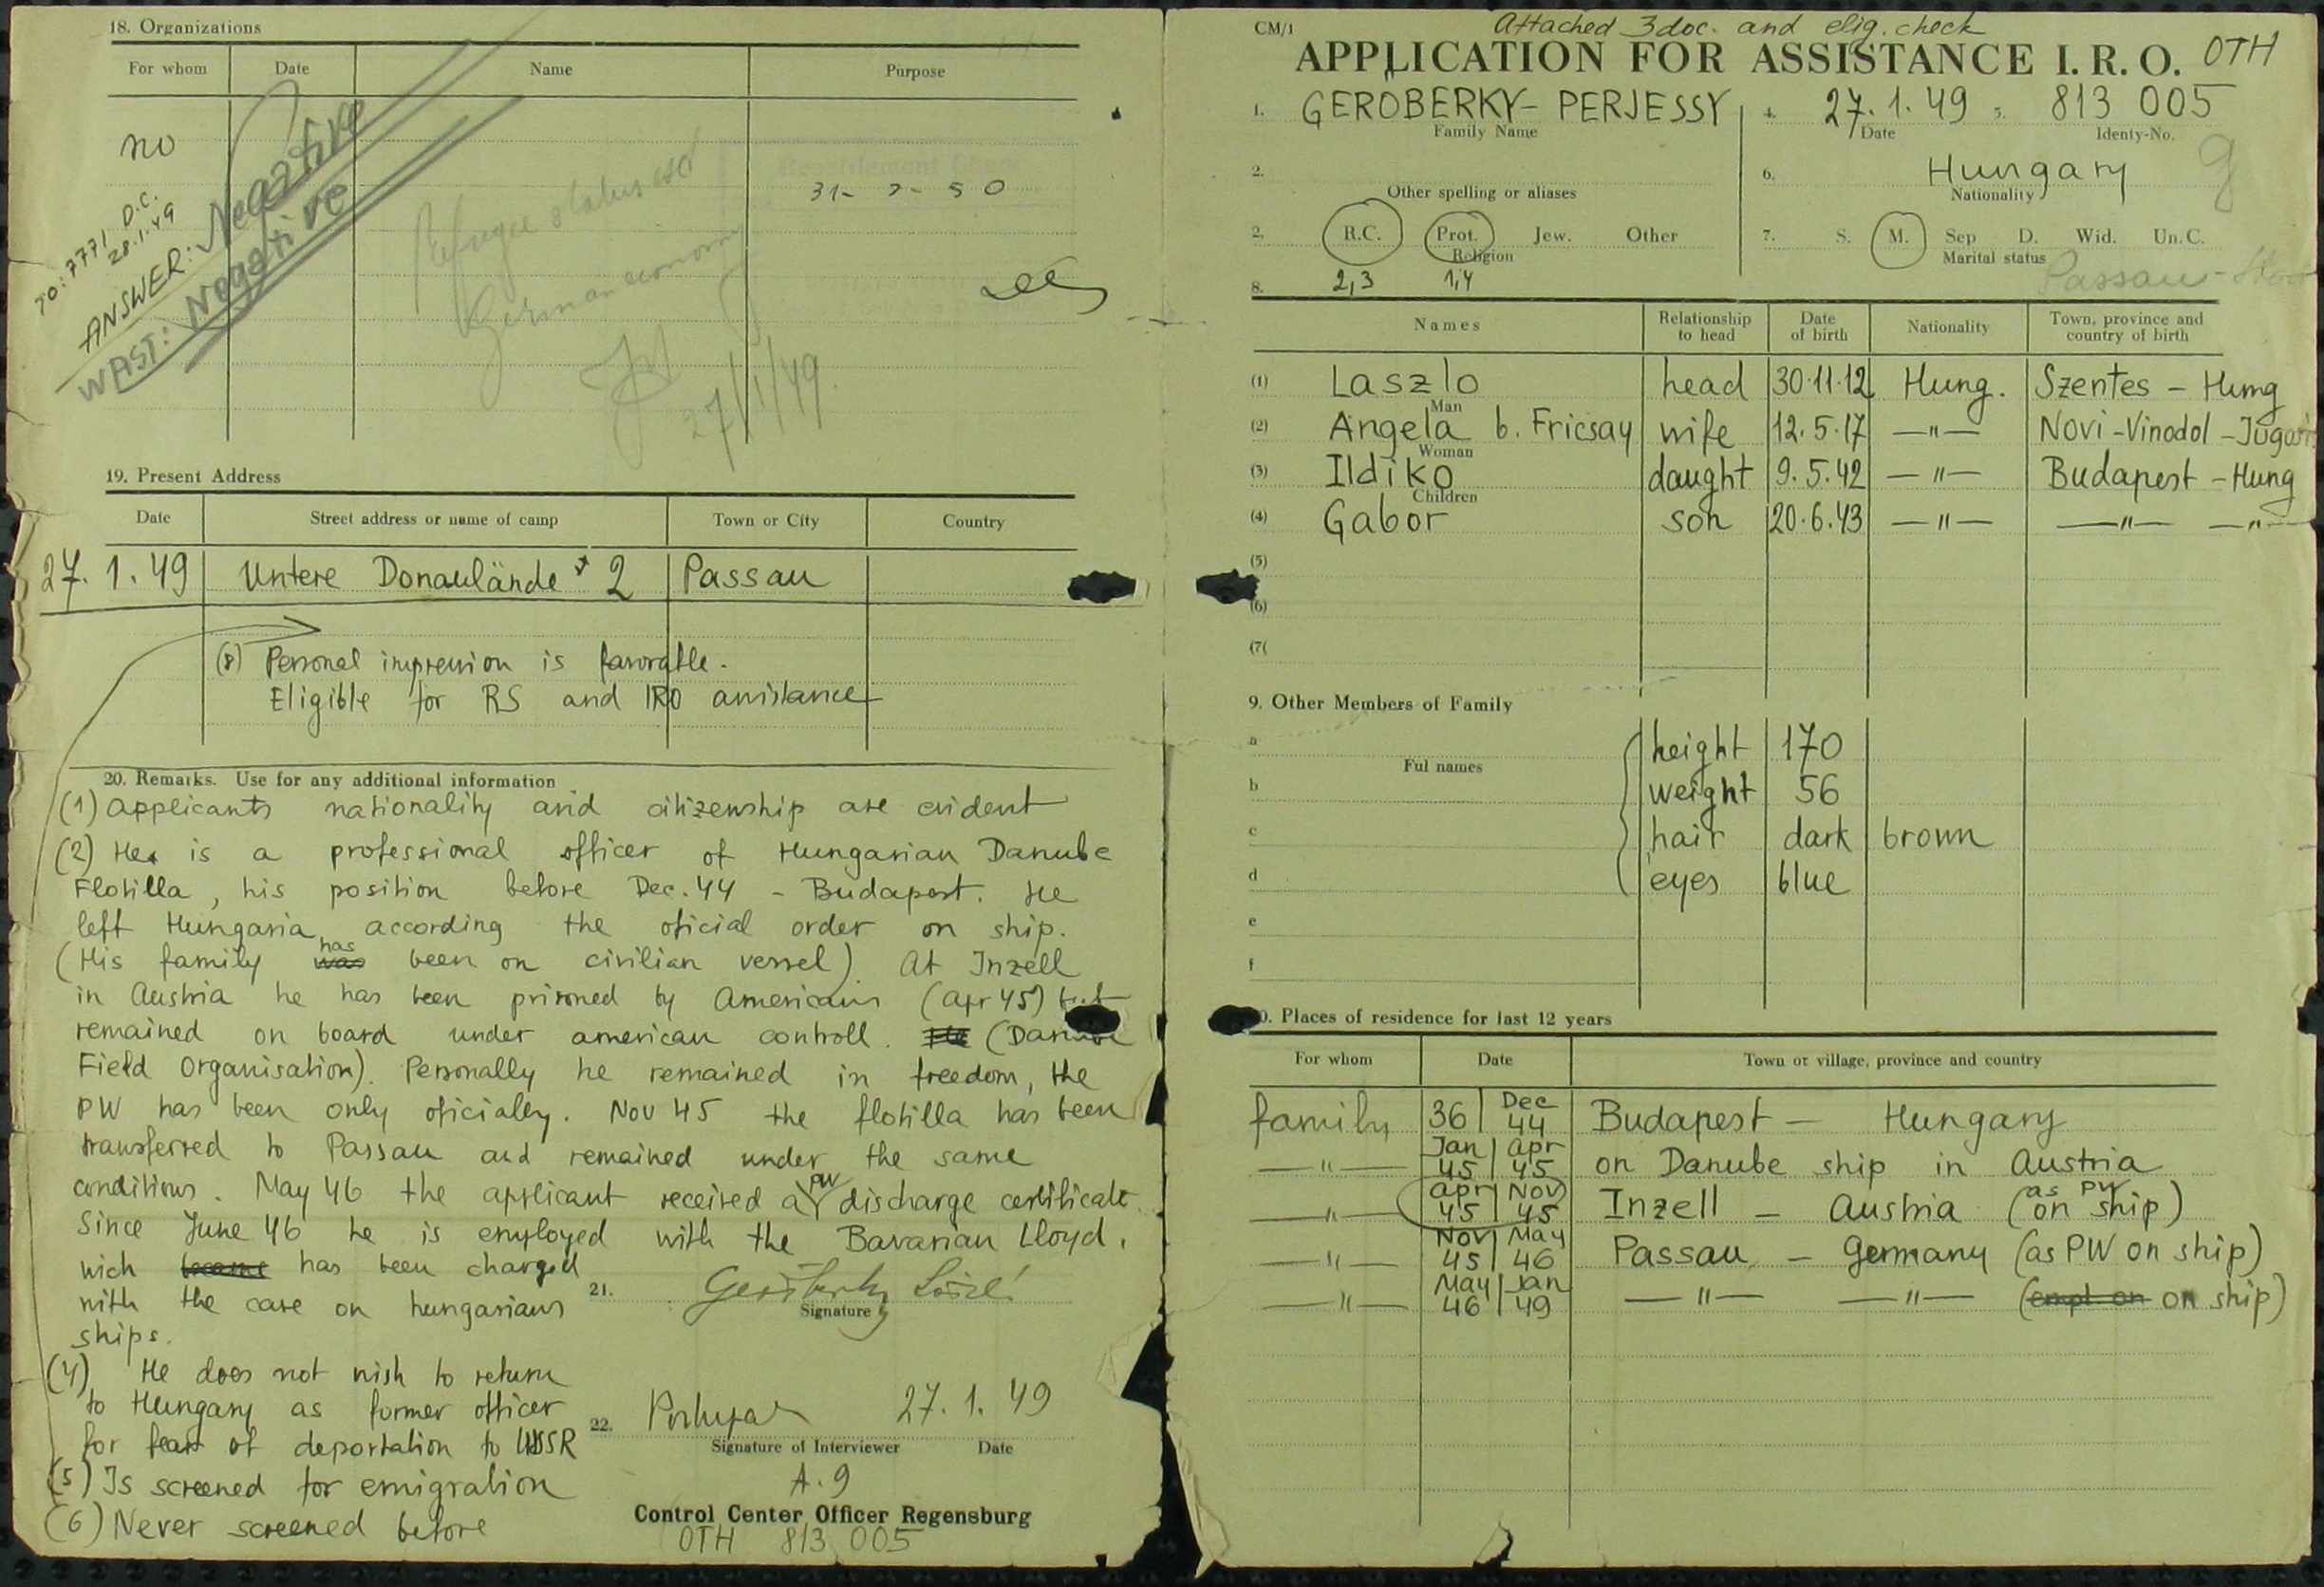 18. Organizations
For whom Date Name Purpose
no
TO: 7771 D.C.
28.1.49
ANSWER: Negative
WAST: Negative
Refugee status
German economy
27/1/49.
31-7-50
19. Present Address
Date Street address or name of camp Town or City Country
27.1.49 Untere Donaulände 2 Passau
(8) Personal impression is favorable.
Eligible for RS and IRO assistance
20. Remarks. Use for any additional information
(1) applicants nationality and citizenship are evident
(2) He is a professional officer of Hungarian Danube
Flotilla, his position before Dec. 44 - Budapest. He
left Hungaria according the oficial order on ship.
(His family was has been on civilian vessel). At Inzell
in Austria he has been prisoned by Americans (apr 45) but
remained on board under american controll. He (Danube
Field Organisation). Personally he remained in freedom, the
PW has been only oficially. Nov 45 the flotilla has been
transferred to Passau and remained under the same
conditions. May 46 the applicant received a PW discharge certificate.
Since June 46 he is employed with the Bavarian Lloyd,
wich became has been charged
with the care on hungarians
ships.
21.
Signature
(4) He does not wish to return
to Hungary as former officer
for fear of deportation to USSR
22. 27.1.49
Signature of Interviewer Date
(5) Is screened for emigration
(6) Never screened before
A.9
Control Center Officer Regensburg
OTH 813 005
CM/1 Attached 3 doc. and elig. check
APPLICATION FOR ASSISTANCE I. R. O. OTH
1. GEROBERKY - PERJESSY 4. 27.1.49 5. 813 005
Family Name Date Identy-No.
2. 6. Hungary
Other spelling or aliases Nationality
2. R.C. Prot. Jew. Other 7. S. M. Sep D. Wid. Un. C.
Religion Marital status
8. 2,3 1,4 Passau
Names Relationship to head Date of birth Nationality Town, province and country of birth
(1) Laszlo head 30.11.12 Hung. Szentes - Hung
Man
(2) Angela b. Fricsay wife 12.5.17 —"— Novi-Vinodol - Jugosl
Woman
(3) Ildiko daught 9.5.42 —"— Budapest - Hung
Children
(4) Gabor son 20.6.43 —"— —"— —"—
(5)
(6)
(7(
9. Other Members of Family
a height 170
Ful names
b weight 56
c hair dark brown
d eyes blue
e
f
0. Places of residence for last 12 years
For whom Date Town or village, province and country
family 36 Dec 44 Budapest - Hungary
—"— Jan 45 Apr 45 on Danube ship in Austria
—"— Apr 45 Nov 45 Inzell - Austria (as PW on ship)
—"— Nov 45 May 46 Passau - Germany (as PW on ship)
—"— May 46 Jan 49 —"— —"— (empl. on on ship)